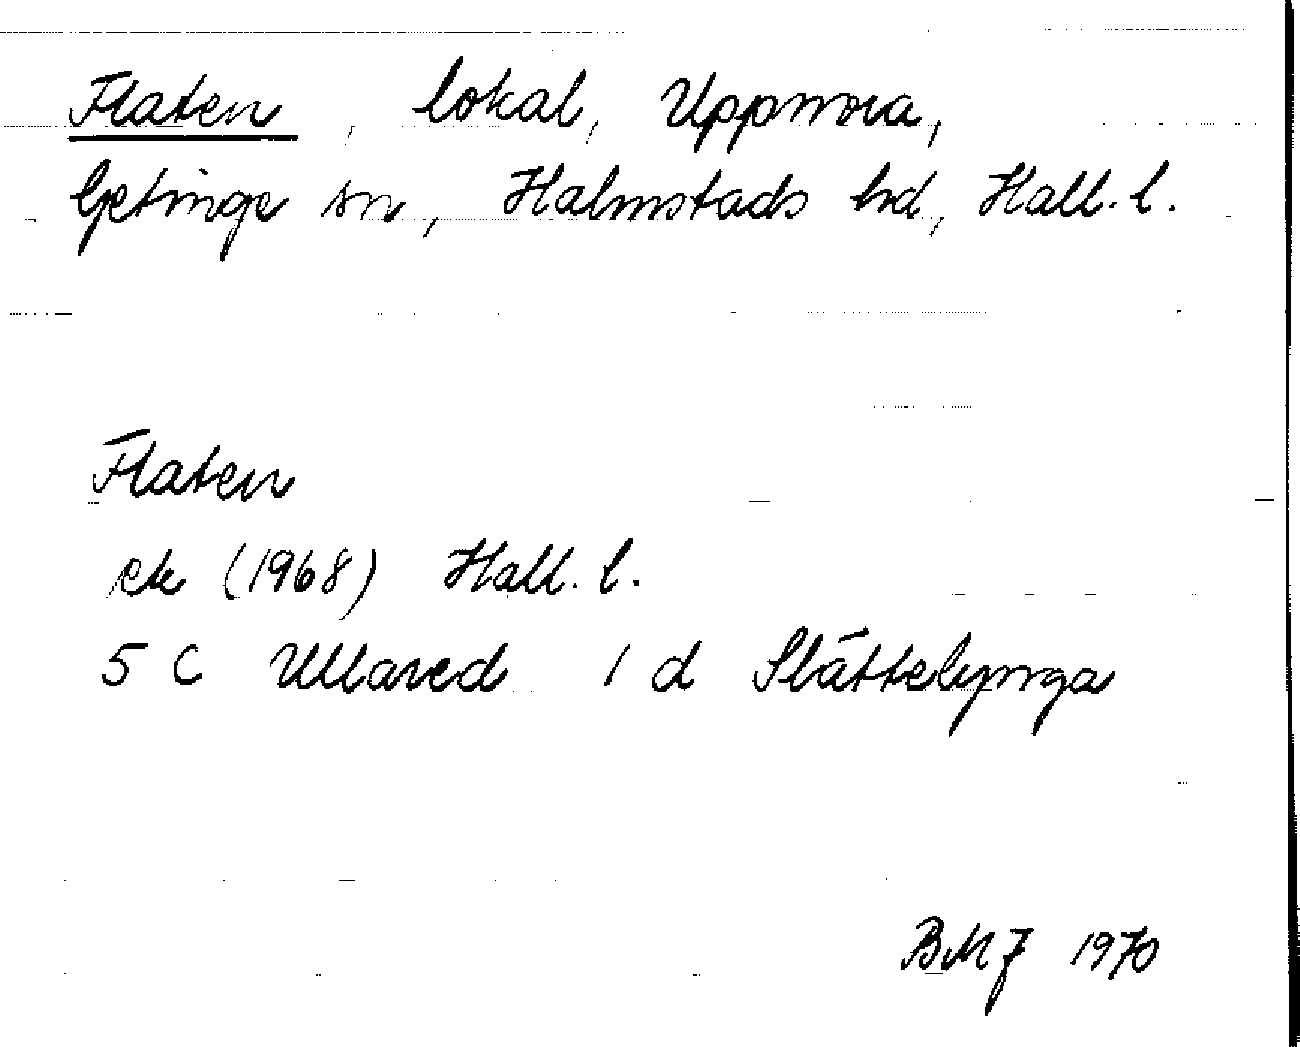 Flaten, lokal, Uppnora,
Getinge sn, Halmstads hd, Hall. l.
Flaten
ek (1968) Hall. l.
5 C Ullared 1 d Slättelynga
BMJ 1970